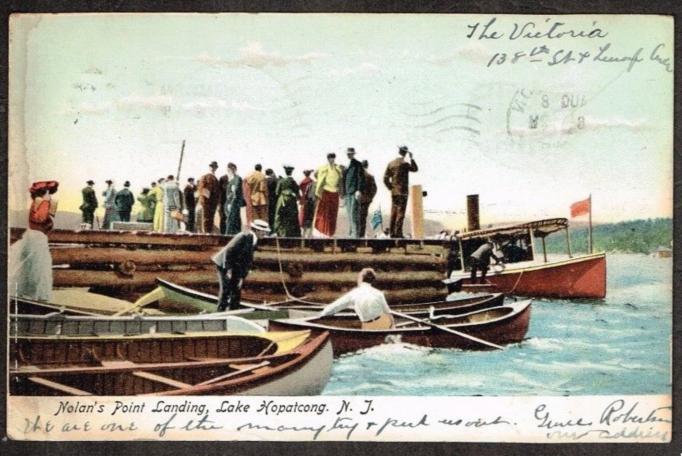 The Victoria
138th St & Lenox Ave
8
8
Nolan's Point Landing, Lake Hopatcong. N. J.
We are one of the many try & pick us out. Grace Roberts
our address